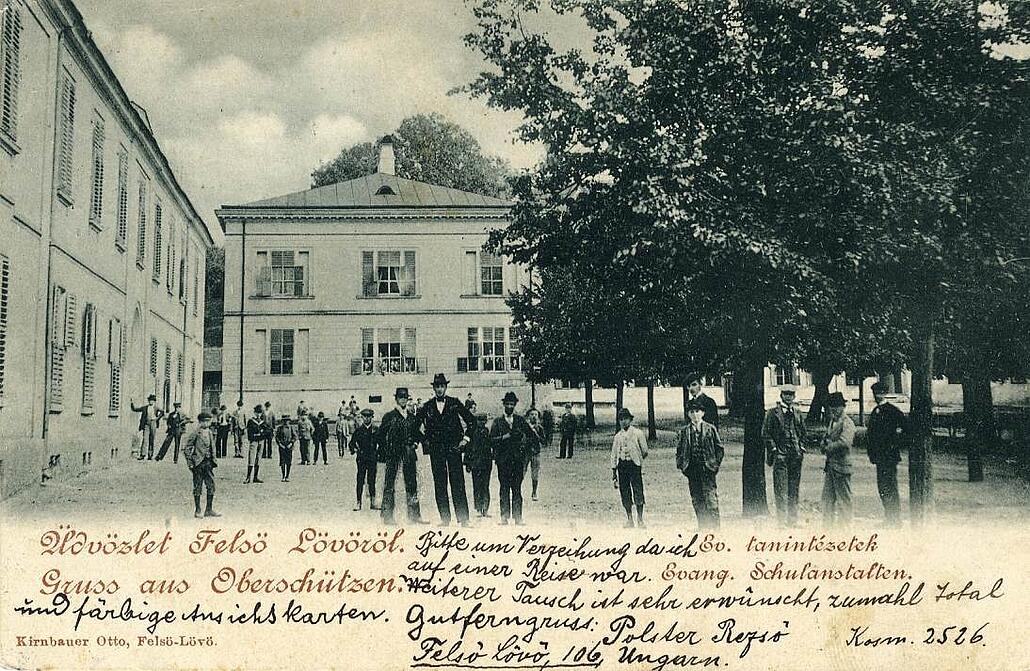 Üdvözlet Felsö Lövöröl.
Gruss aus Oberschützen.
Ev. tanintézetek
Evang. Schulanstalten.
Bitte um Verzeihung da ich
auf einer Reise war.
Weiterer Tausch ist sehr erwünscht, zumahl Total
und färbige Ansichtskarten.
Gutferngruss: Polster Rezsö
Kosm. 2526.
Felsö Lövö, 106, Ungarn.
Kirnbauer Otto, Felsö-Lövö.